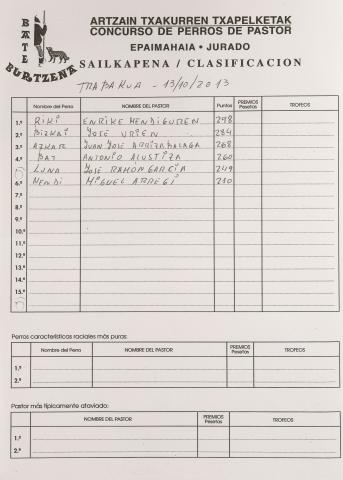 BATE
BURTZENA
ARTZAIN TXAKURREN TXAPELKETAK
CONCURSO DE PERROS DE PASTOR
EPAIMAHAIA • JURADO
SAILKAPENA / CLASIFICACION
TRABAKUA - 13/10/2013
Nombre del Perro NOMBRE DEL PASTOR Puntos PREMIOS Pesetas TROFEOS
1.º RIKI ENRIKE MENDIGUREN 298
2.º BIZKAI JOSE URIEN 284
3.º AZKAR JUAN JOSE ARRIZABALAGA 268
4.º BAT ANTONIO ALUSTIZA 260
5.º LUNA JOSE RAMÓN GARCÍA 249
6.º MENDI MIGUEL ARREGI 210
7.º
8.º
9.º
10.º
11.º
12.º
13.º
14.º
15.º
Perros características raciales más puras:
Nombre del Perro NOMBRE DEL PASTOR PREMIOS Pesetas TROFEOS
1.º
2.º
Pastor más típicamente ataviado:
NOMBRE DEL PASTOR PREMIOS Pesetas TROFEOS
1.º
2.º